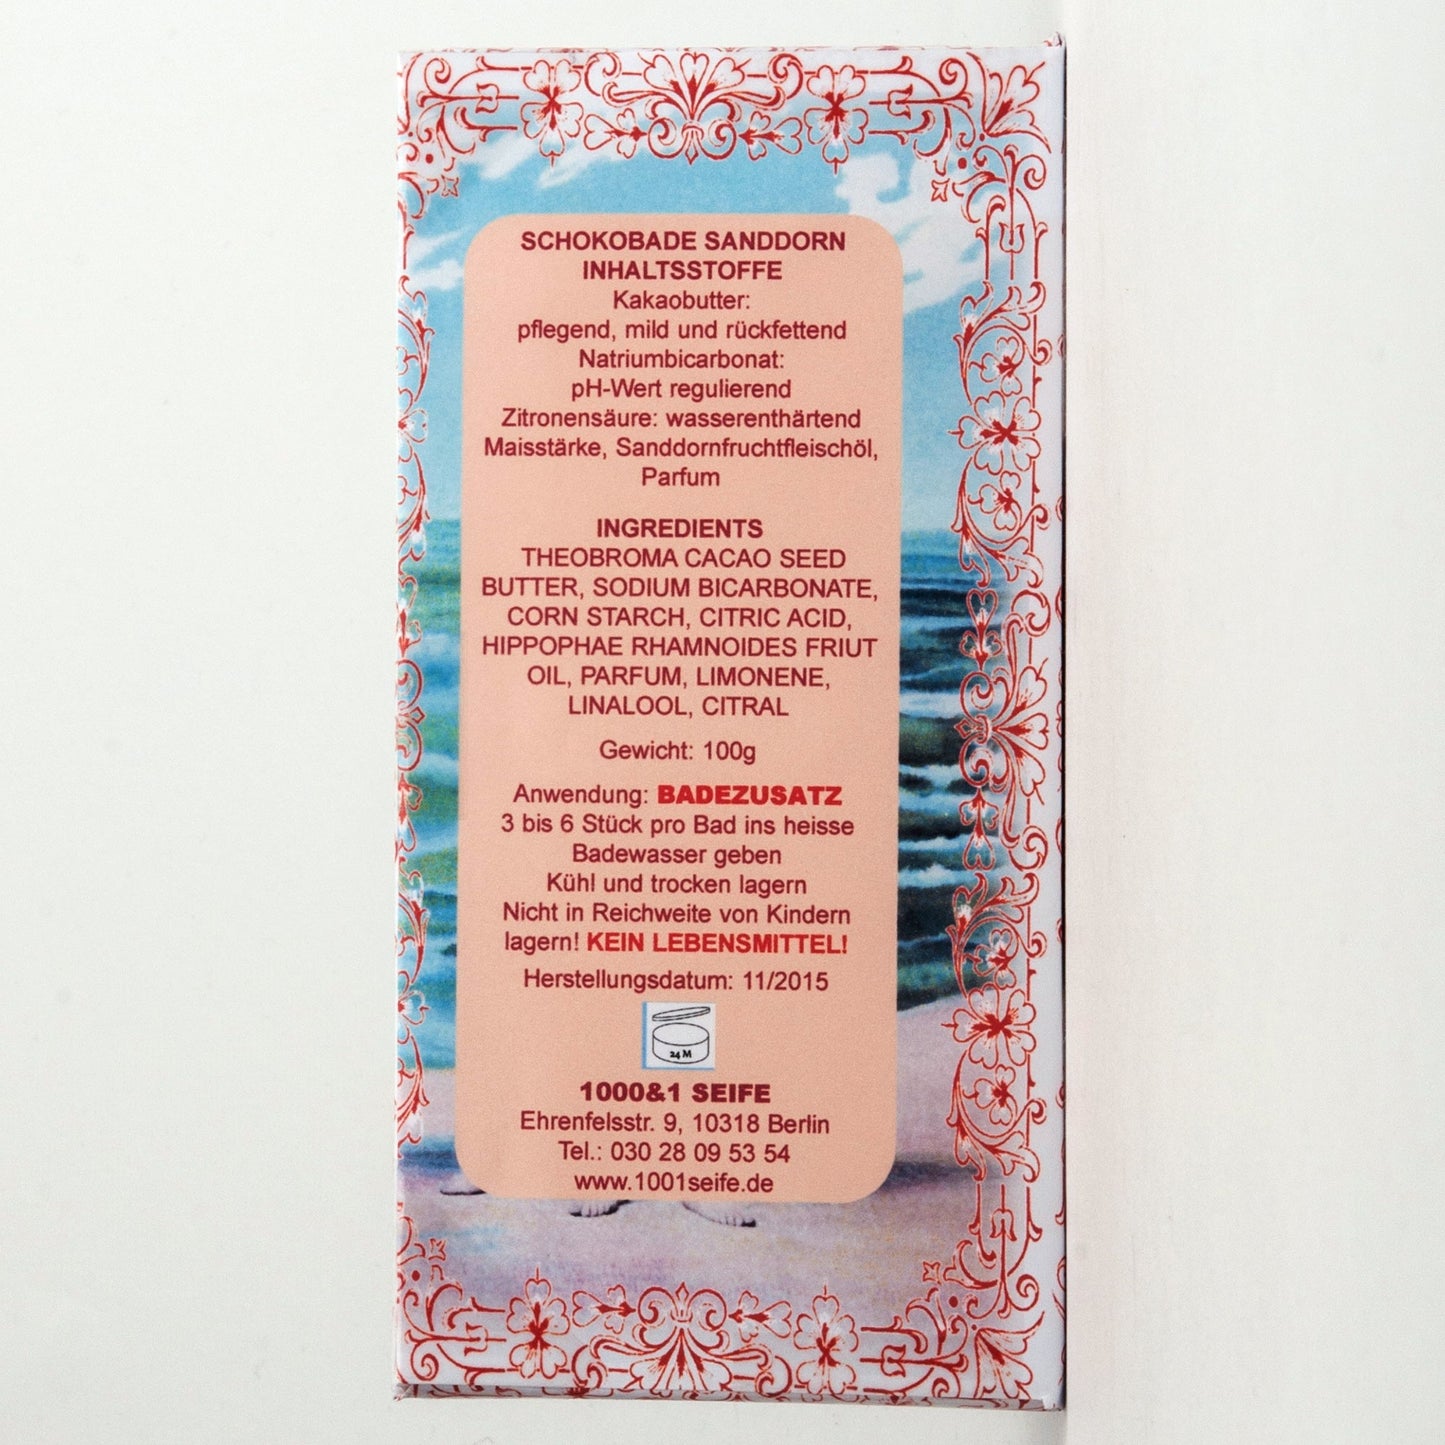 SCHOKOBADE SANDDORN
INHALTSSTOFFE
Kakaobutter:
pflegend, mild und rückfettend
Natriumbicarbonat:
pH-Wert regulierend
Zitronensäure: wasserenthärtend
Maisstärke, Sanddornfruchtfleischöl,
Parfum
INGREDIENTS
THEOBROMA CACAO SEED
BUTTER, SODIUM BICARBONATE,
CORN STARCH, CITRIC ACID,
HIPPOPHAE RHAMNOIDES FRIUT
OIL, PARFUM, LIMONENE,
LINALOOL, CITRAL
Gewicht: 100g
Anwendung: BADEZUSATZ
3 bis 6 Stück pro Bad ins heisse
Badewasser geben
Kühl und trocken lagern
Nicht in Reichweite von Kindern
lagern! KEIN LEBENSMITTEL!
Herstellungsdatum: 11/2015
24 M
1000&1 SEIFE
Ehrenfelsstr. 9, 10318 Berlin
Tel.: 030 28 09 53 54
www.1001seife.de